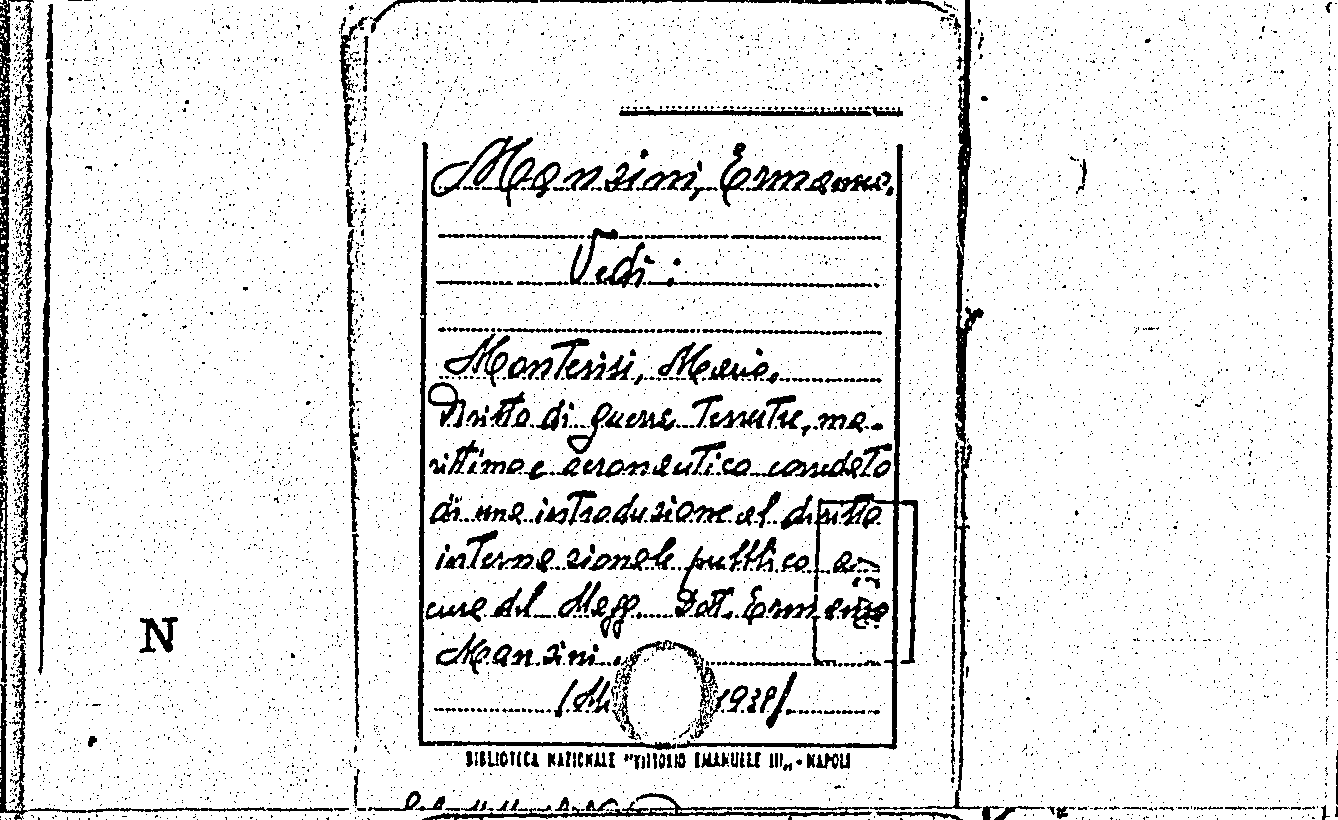 Mansini, Ermanno.
Vedi:
Monterisi, Mario.
Diritto di guerra terrestre, ma-
rittimo e aeronautico corredato
di una introduzione al diritto
internazionale pubblico a
cura del Magg. Dott. Ermanno
Mansini.
1938/
BIBLIOTECA NAZIONALE "VITTORIO EMANUELE III„ - NAPOLI
N